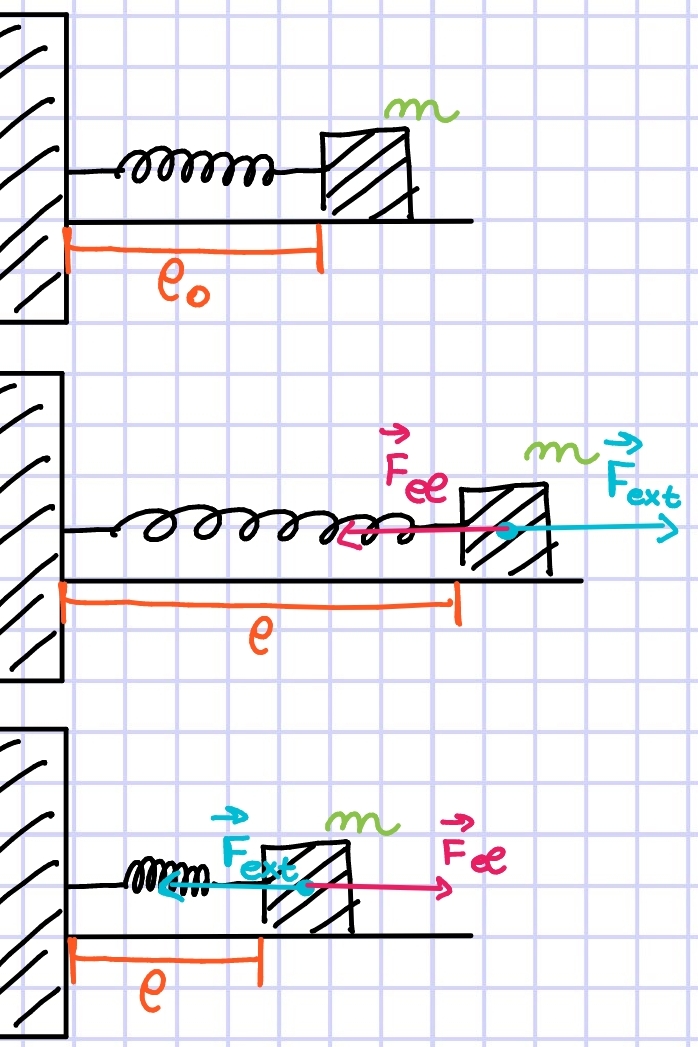 m
ℓ₀
F⃗eℓ
m
F⃗ext
ℓ
m
F⃗ext
F⃗eℓ
ℓ